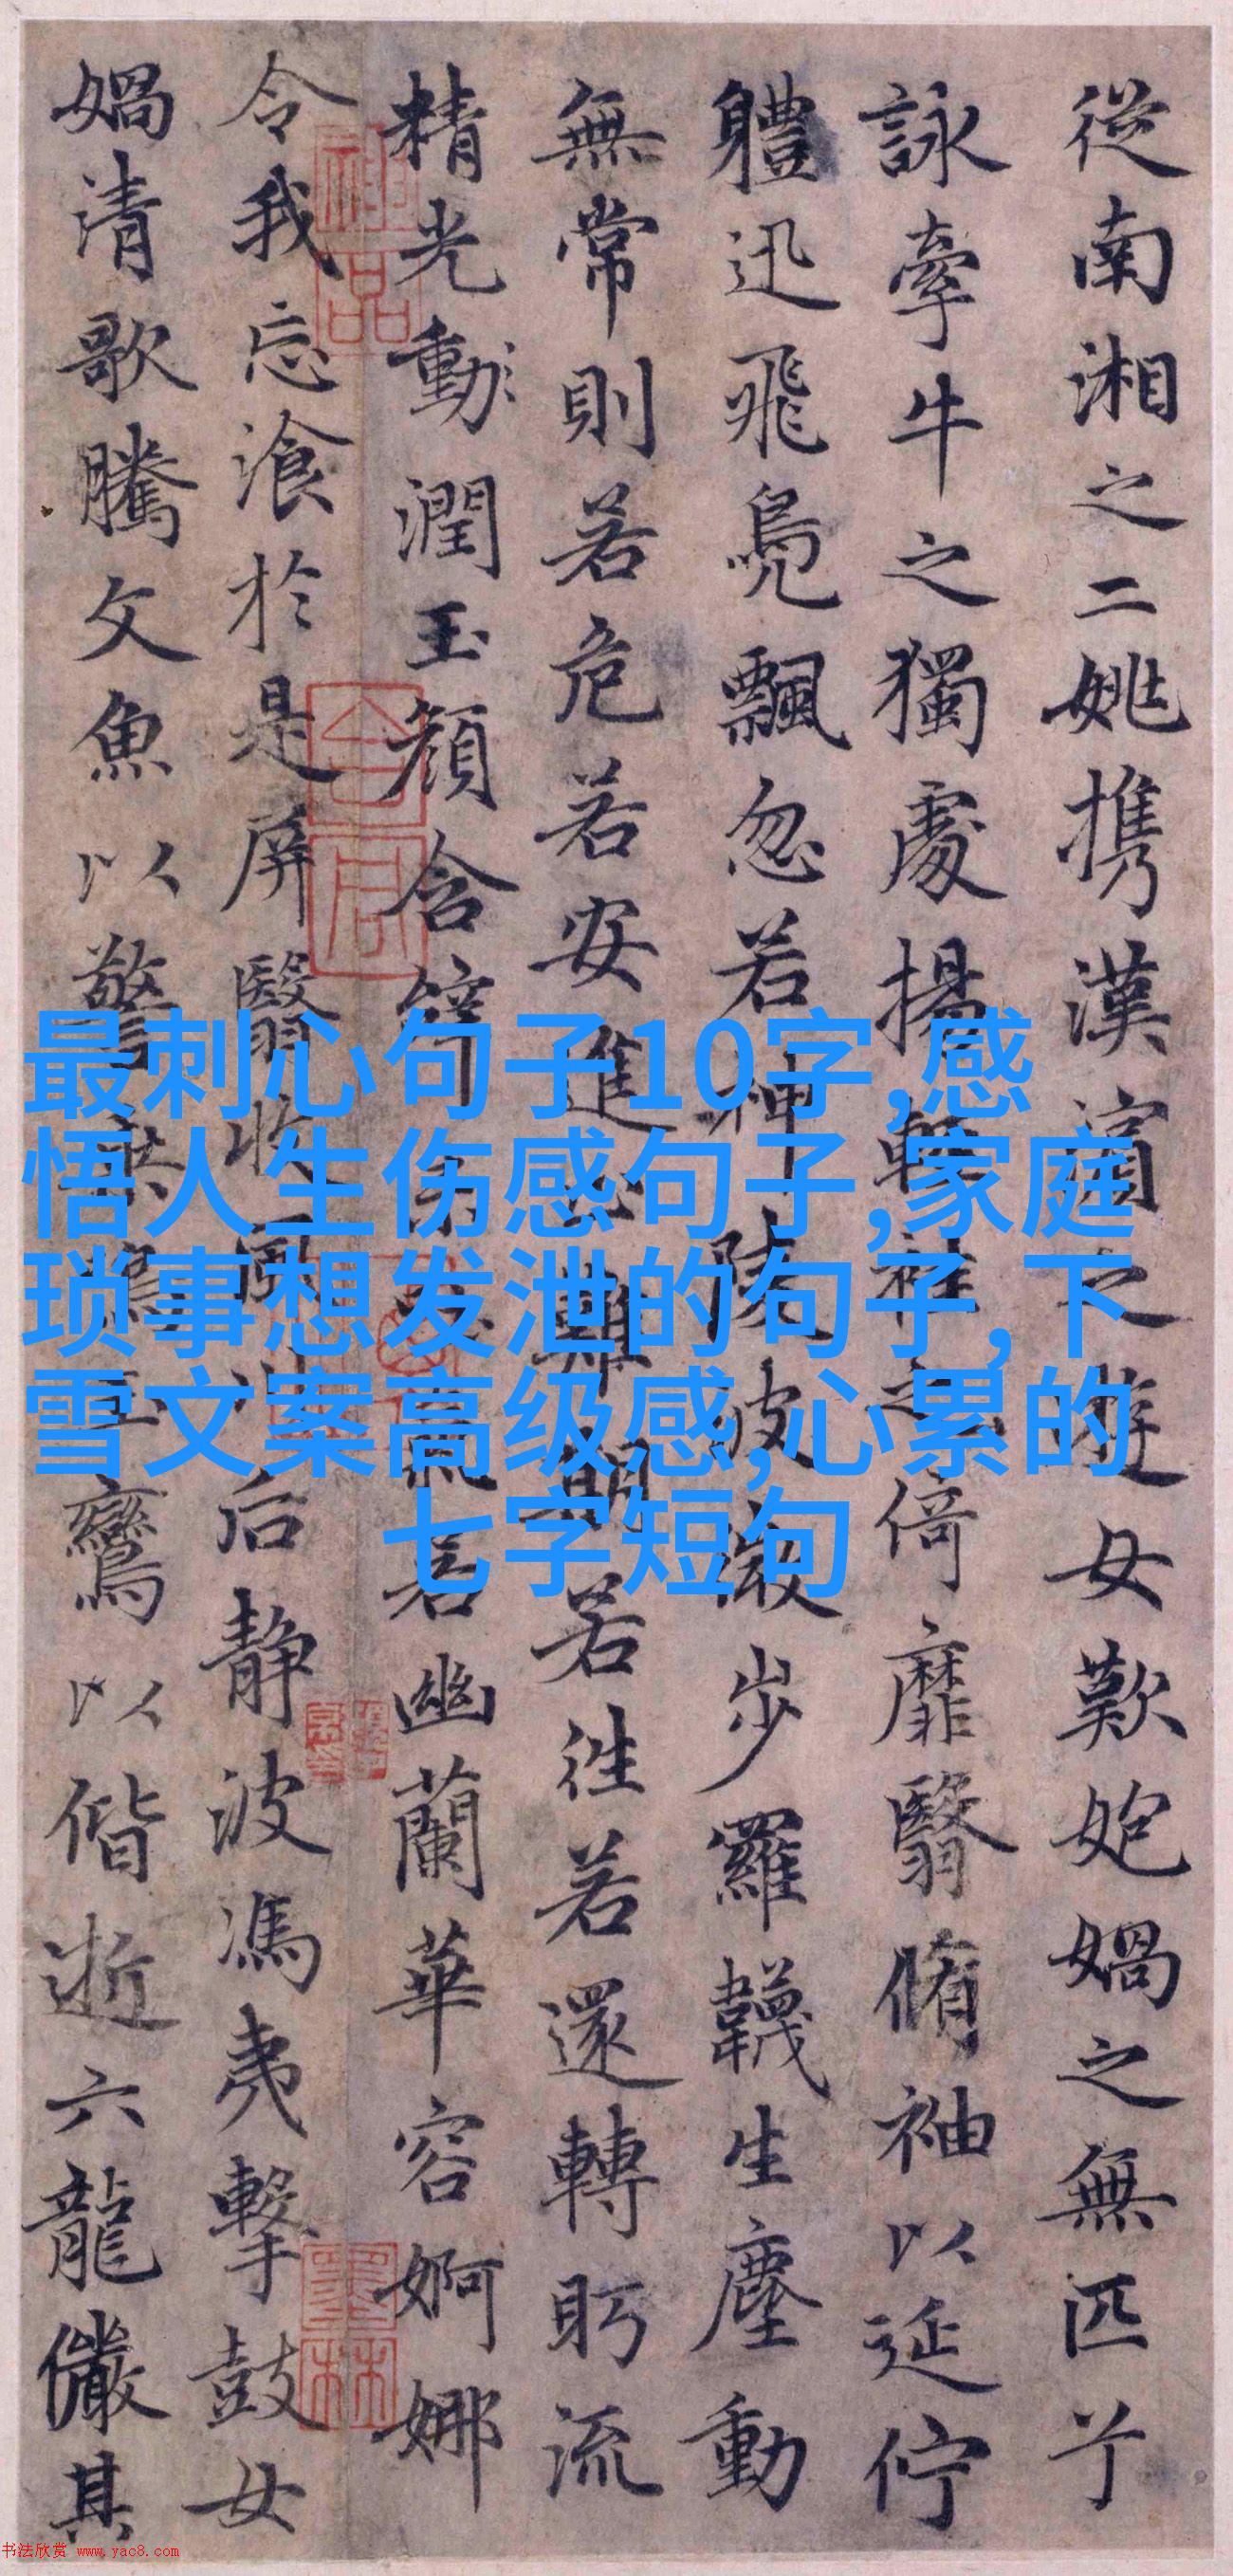 從南湘之二姚携漢濱之遊女歎妑媧之無匹兮
詠牽牛之獨處揚輕袿之倚靡翳脩袖以延佇
軆迅飛鳧飄忽若神陵波微步羅韈生塵動
無常則若危若安進止難期若往若還轉眄流
精光動潤玉顏含辭未吐氣若幽蘭華容婀娜
令我忘湌於是屏翳收風川后靜波馮夷擊鼓女
媧清歌騰文魚以警乘鳴玉鸞以偕逝六龍儼其
神品
墨林
最刺心句子10字,感
悟人生伤感句子,家庭
琐事想发泄的句子,下
雪文案高级感,心累的
七字短句
书法欣赏 www.yac8.com